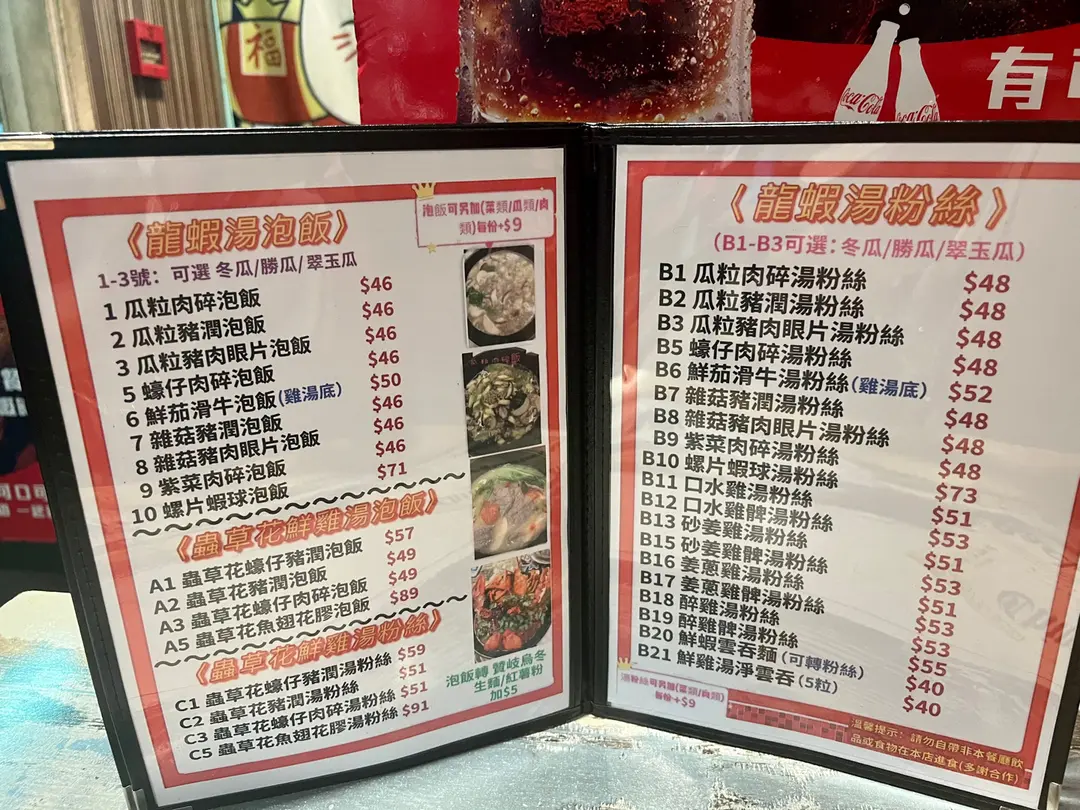 福
有
Coca-Cola
Coca-Cola
〈龍蝦湯泡飯〉
泡飯可另加(菜類/瓜類/肉
類)每份+$9
1-3號: 可選 冬瓜/勝瓜/翠玉瓜
1 瓜粒肉碎泡飯 $46
2 瓜粒豬潤泡飯 $46
3 瓜粒豬肉眼片泡飯 $46
5 蠔仔肉碎泡飯 $46
6 鮮茄滑牛泡飯(雞湯底) $50
7 雜菇豬潤泡飯 $46
8 雜菇豬肉眼片泡飯 $46
9 紫菜肉碎泡飯 $46
10 螺片蝦球泡飯 $71
〈蟲草花鮮雞湯泡飯〉
A1 蟲草花蠔仔豬潤泡飯 $57
A2 蟲草花豬潤泡飯 $49
A3 蟲草花蠔仔肉碎泡飯 $49
A5 蟲草花魚翅花膠泡飯 $89
〈蟲草花鮮雞湯粉絲〉
C1 蟲草花蠔仔豬潤湯粉絲 $59
C2 蟲草花豬潤湯粉絲 $51
C3 蟲草花蠔仔肉碎湯粉絲 $51
C5 蟲草花魚翅花膠湯粉絲 $91
泡飯轉 讚岐烏冬
生麵/紅薯粉
加$5
〈龍蝦湯粉絲〉
(B1-B3可選:冬瓜/勝瓜/翠玉瓜)
B1 瓜粒肉碎湯粉絲 $48
B2 瓜粒豬潤湯粉絲 $48
B3 瓜粒豬肉眼片湯粉絲 $48
B5 蠔仔肉碎湯粉絲 $48
B6 鮮茄滑牛湯粉絲(雞湯底) $52
B7 雜菇豬潤湯粉絲 $48
B8 雜菇豬肉眼片湯粉絲 $48
B9 紫菜肉碎湯粉絲 $48
B10 螺片蝦球湯粉絲 $73
B11 口水雞湯粉絲 $51
B12 口水雞髀湯粉絲 $53
B13 砂姜雞湯粉絲 $51
B15 砂姜雞髀湯粉絲 $53
B16 姜蔥雞湯粉絲 $51
B17 姜蔥雞髀湯粉絲 $53
B18 醉雞湯粉絲 $53
B19 醉雞髀湯粉絲 $55
B20 鮮蝦雲吞麵(可轉粉絲) $40
B21 鮮雞湯淨雲吞(5粒) $40
湯粉絲可另加(菜類/肉類)
每份+$9
溫馨提示: 請勿自帶非本餐廳飲
品或食物在本店進食(多謝合作)